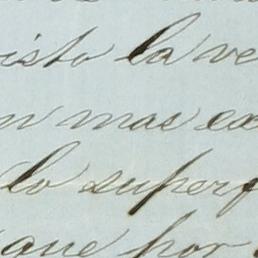 isto la ve
n mas ex
lo superf
que por